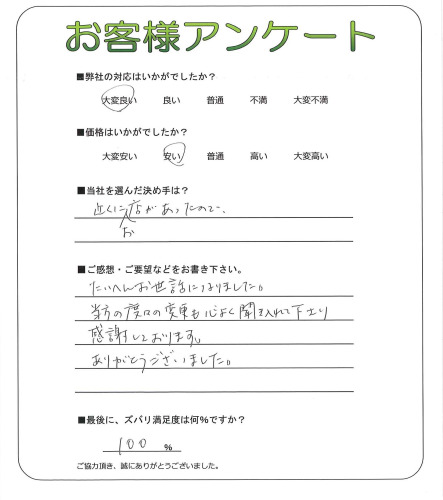 お客様アンケート
■弊社の対応はいかがでしたか？
大変良い 良い 普通 不満 大変不満
■価格はいかがでしたか？
大変安い 安い 普通 高い 大変高い
■当社を選んだ決め手は？
近くにお店があったので、
■ご感想・ご要望などをお書き下さい。
たいへんお世話になりました。
当方の度々の変更も心よく聞き入れて下さり
感謝しております。
ありがとうございました。
■最後に、ズバリ満足度は何％ですか？
100 %
ご協力頂き、誠にありがとうございました。